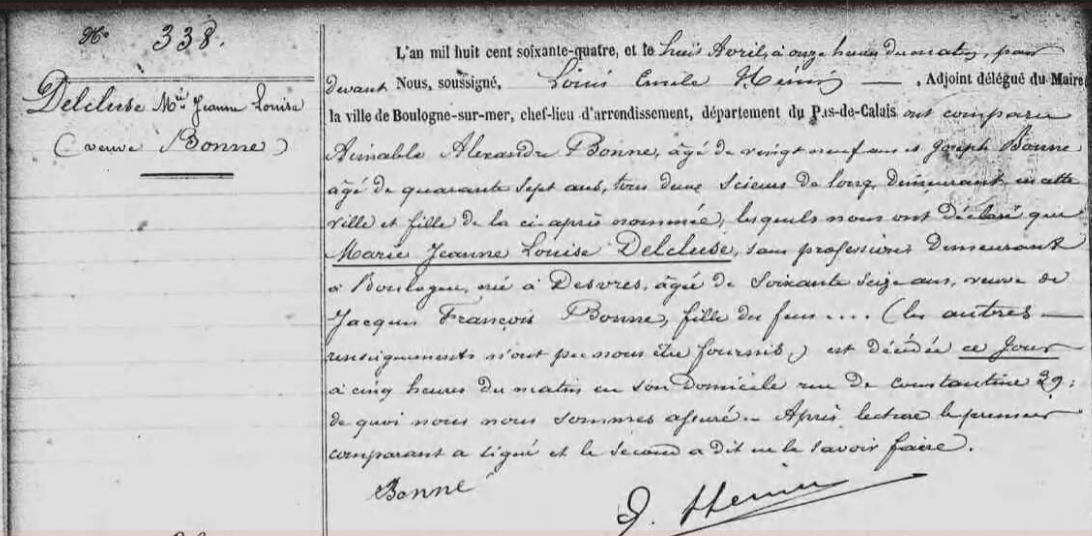 No 338.
Delcluse Mie Jeanne Louise
(veuve Bonne)
L'an mil huit cent soixante-quatre, et le huit Avril, à onze heures du matin, par
devant Nous, soussigné, Louis Emile Henin — , Adjoint délégué du Maire
la ville de Boulogne-sur-mer, chef-lieu d'arrondissement, département du Pas-de-Calais ont comparu
Aimable Alexandre Bonne, âgé de vingt neuf ans et Joseph Bonne
âgé de quarante sept ans, tous deux scieurs de long, demeurant en cette
ville et fils de la ci-après nommée, lesquels nous ont déclaré que
Marie Jeanne Louise Delcluse, sans profession demeurant
à Boulogne, née à Desvres, âgée de soixante seize ans, veuve de
Jacques François Bonne, fille des feus .... (les autres —
renseignements n'ont pu nous être fournis,) est décédée ce jour
à cinq heures du matin en son domicile rue de constantine 39;
de quoi nous nous sommes assuré. Après lecture le premier
comparant a signé et le second a dit ne le savoir faire.
Bonne
Henin